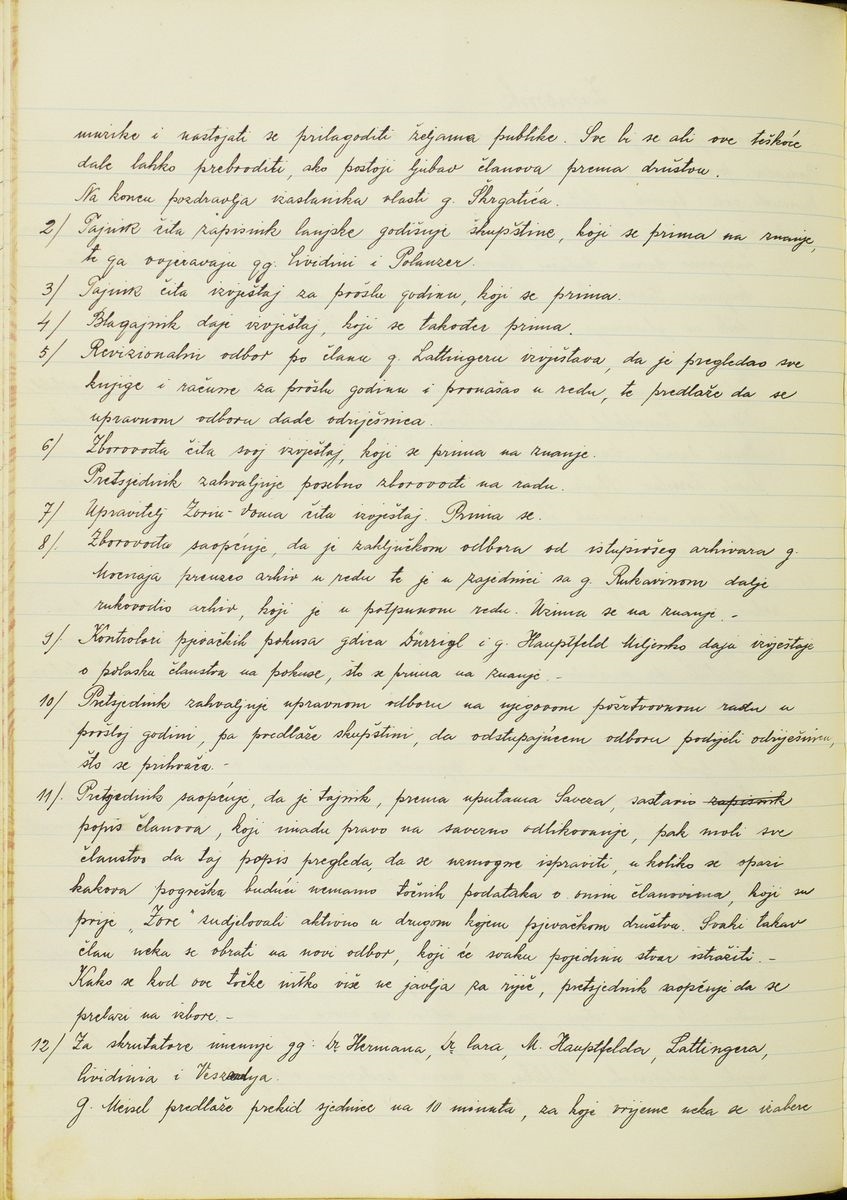 muzike i nastojati se prilagoditi željama publike. Sve bi se ali ove teškoće
dale lahko prebroditi, ako postoji ljubav članova prema društvu.
Na koncu pozdravlja izaslanika vlasti g. Škrgatića.
2/ Tajnik čita zapisnik lanjske godišnje skupštine, koji se prima na znanje,
te ga ovjeravaju gg. Cividini i Polanzer.
3/ Tajnik čita izvještaj za prošlu godinu, koji se prima.
4/ Blagajnik daje izvještaj, koji se također prima.
5/ Revizionalni odbor po članu g. Lattingeru izvještava, da je pregledao sve
knjige i račune za prošlu godinu i pronašao u redu, te predlaže da se
upravnom odboru dade odriješnica.
6/ Zborovođa čita svoj izvještaj, koji se prima na znanje.
Pretsjednik zahvaljuje posebno zborovođi na radu.
7/ Upravitelj Zorin-doma čita izvještaj. Prima se.
8/. Zborovođa saopćuje, da je zaključkom odbora od istupivšeg arhivara g.
Mocnaja preuzeo arhiv u redu te je u zajednici sa g. Rukavinom dalje
rukovodio arhiv, koji je u potpunom redu. Uzima se na znanje. -
9/. Kontrolori pjevačkih pokusa gdica Dürrigl i g. Hauptfeld Miljenko daju izvještaje
o polasku članstva na pokuse, što se prima na znanje. -
10/. Pretsjednik zahvaljuje upravnom odboru na njegovom požrtvovnom radu u
prošloj godini, pa predlaže skupštini, da odstupajućem odboru podijeli odriješnicu,
što se prihvaća. -
11/. Pretsjednik saopćuje, da je tajnik, prema uputama Saveza, sastavio zapisnik
popis članova, koji imadu pravo na savezno odlikovanje, pak moli sve
članstvo da taj popis pregleda, da se uzmogne ispraviti, u koliko se opazi
kakova pogreška budući nemamo točnih podataka o onim članovima, koji su
prije „Zore" sudjelovali aktivno u drugom kojem pjevačkom društvu. Svaki takav
član neka se obrati na novi odbor, koji će svaku pojedinu stvar istražiti. -
Kako se kod ove točke nitko više ne javlja za riječ, pretsjednik saopćuje da se
prelazi na izbore. -
12/ Za skrutatore imenuje gg: Dr Hermana, Dr Cara, M. Hauptfelda, Lattingera,
Cividinia i
G. Meisel predlaže prekid sjednice na 10 minuta, za koje vrijeme neka se izabere